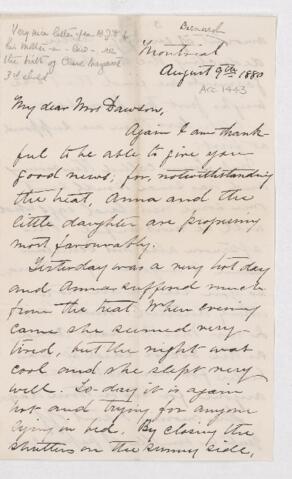 Very nice letter from BJH to
his mother-in-law re
the birth of Clare Margaret
3rd child
Bernard
Montreal
August 9th 1880
Acc 1443
My dear Mrs Dawson,
Again I am thank-
ful to be able to give you
good news; for, notwithstanding
the heat, Anna and the
little daughter are progressing
most favourably.
Yesterday was a very hot day
and Anna suffered much
from the heat. When evening
came she seemed very
tired, but the night was
cool and she slept very
well. To-day it is again
hot and trying for anyone
lying in bed. By closing the
shutters on the sunny side,